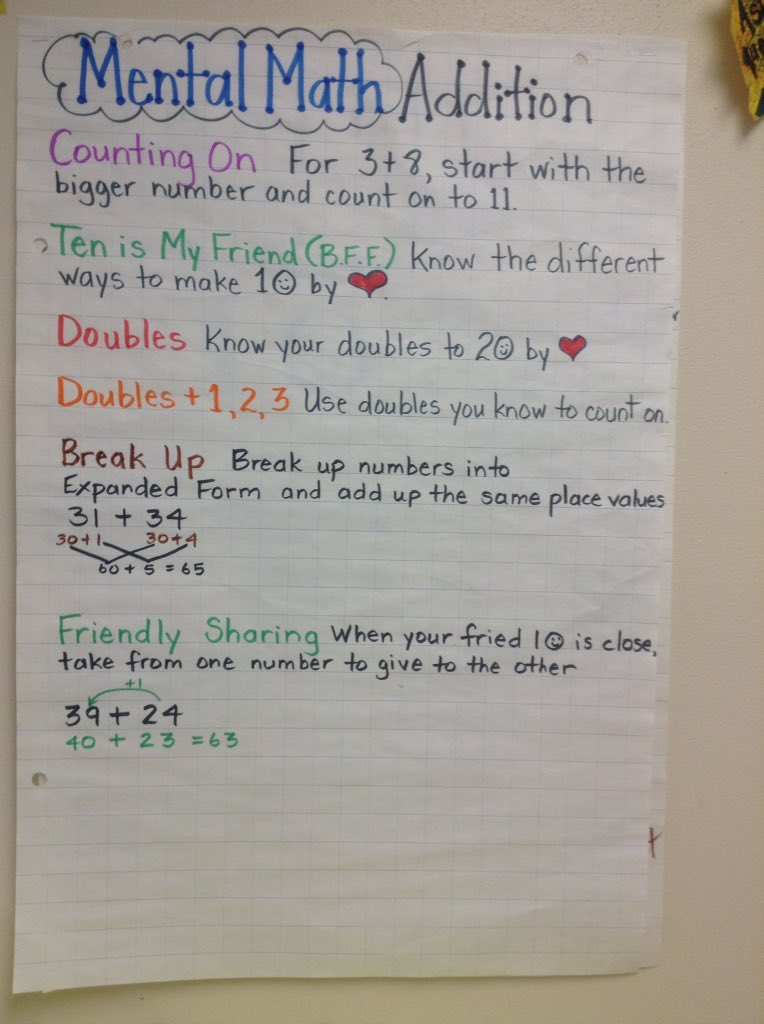 Mental Math Addition
Counting On For 3+8, start with the
bigger number and count on to 11.
Ten is My Friend (B.F.F.) Know the different
ways to make 10 by ❤.
Doubles Know your doubles to 20 by ❤
Doubles + 1, 2, 3 Use doubles you know to count on.
Break Up Break up numbers into
Expanded Form and add up the same place values
31 + 34
30+1 30+4
60 + 5 = 65
Friendly Sharing When your fried 10 is close,
take from one number to give to the other
+1
39 + 24
40 + 23 = 63